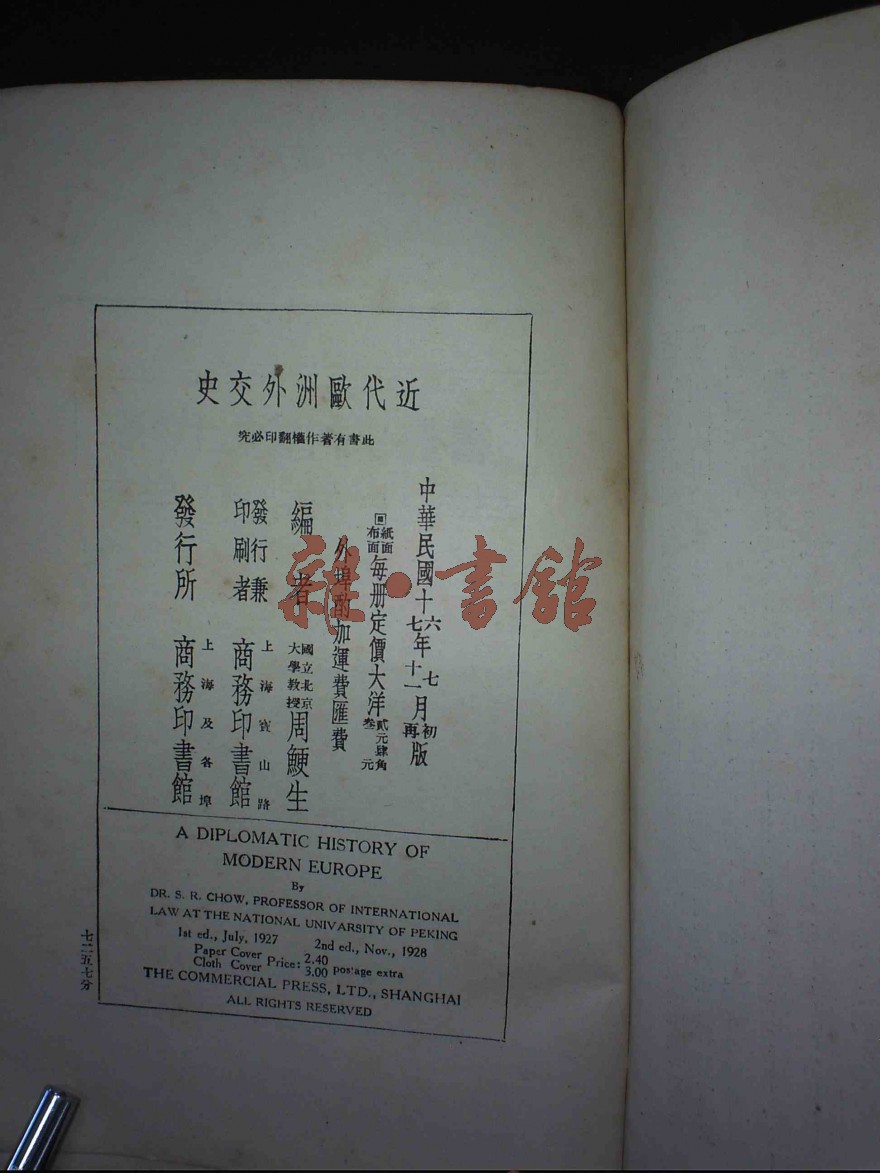 近代歐洲外交史
此書有著作權翻印必究
中華民國十六七年七十一月初再版
紙面布面每册定價大洋貳元肆角叁元
外埠酌加運費匯費
編者 國立北京大學教授 周鯁生
發行兼印刷者 上海寶山路 商務印書館
發行所 上海及各埠 商務印書館
A DIPLOMATIC HISTORY OF
MODERN EUROPE
By
DR. S. R. CHOW, PROFESSOR OF INTERNATIONAL
LAW AT THE NATIONAL UNIVARSITY OF PEKING
1st ed., July, 1927 2nd ed., Nov., 1928
Paper Cover Cloth Cover Price: 2.40 3.00 postage extra
THE COMMERCIAL PRESS, LTD., SHANGHAI
ALL RIGHTS RESERVED
七二五七分
雜·書舘